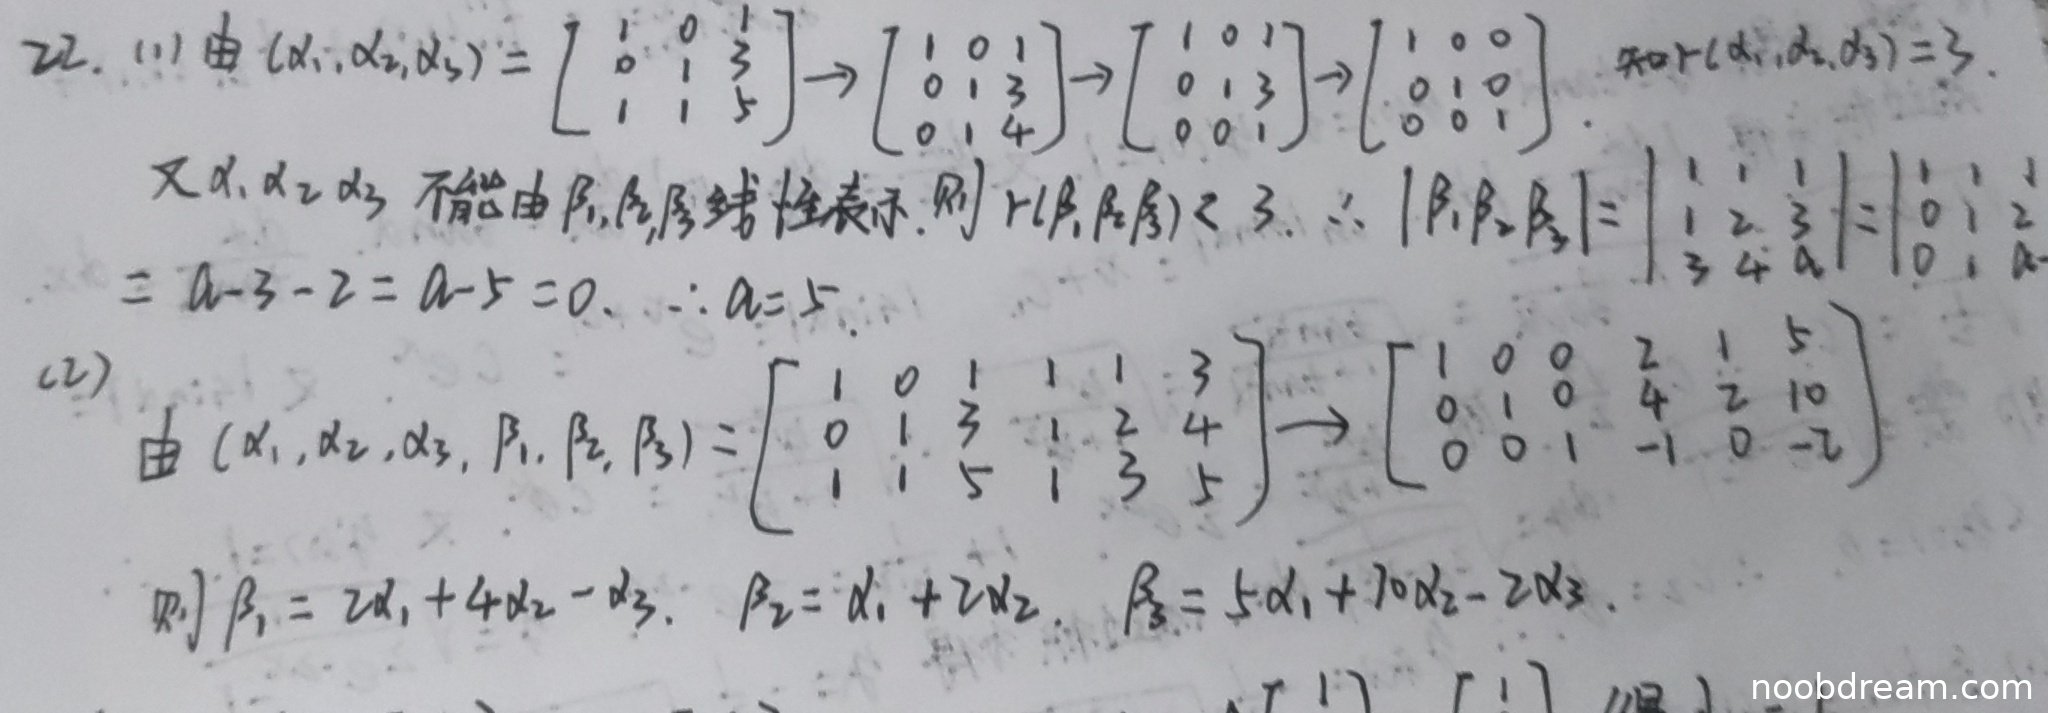 22. (1) 由 (α₁,α₂,α₃) = [1 0 1; 0 1 3; 1 1 5] → [1 0 1; 0 1 3; 0 1 4] → [1 0 1; 0 1 3; 0 0 1] → [1 0 0; 0 1 0; 0 0 1]. 知r(α₁,α₂,α₃)=3.
又α₁α₂α₃不能由β₁,β₂,β₃线性表示.则r(β₁β₂β₃)<3. ∴ |β₁β₂β₃| = |1 1 1; 1 2 3; 3 4 a| = |1 1 1; 0 1 2; 0 1 a-
= a-3-2 = a-5 = 0. ∴ a=5.
(2)
由 (α₁,α₂,α₃,β₁,β₂,β₃) = [1 0 1 1 1 3; 0 1 3 1 2 4; 1 1 5 1 3 5] → [1 0 0 2 1 5; 0 1 0 4 2 10; 0 0 1 -1 0 -2]
则β₁ = 2α₁+4α₂-α₃. β₂ = α₁+2α₂. β₃ = 5α₁+10α₂-2α₃.
noobdream.com